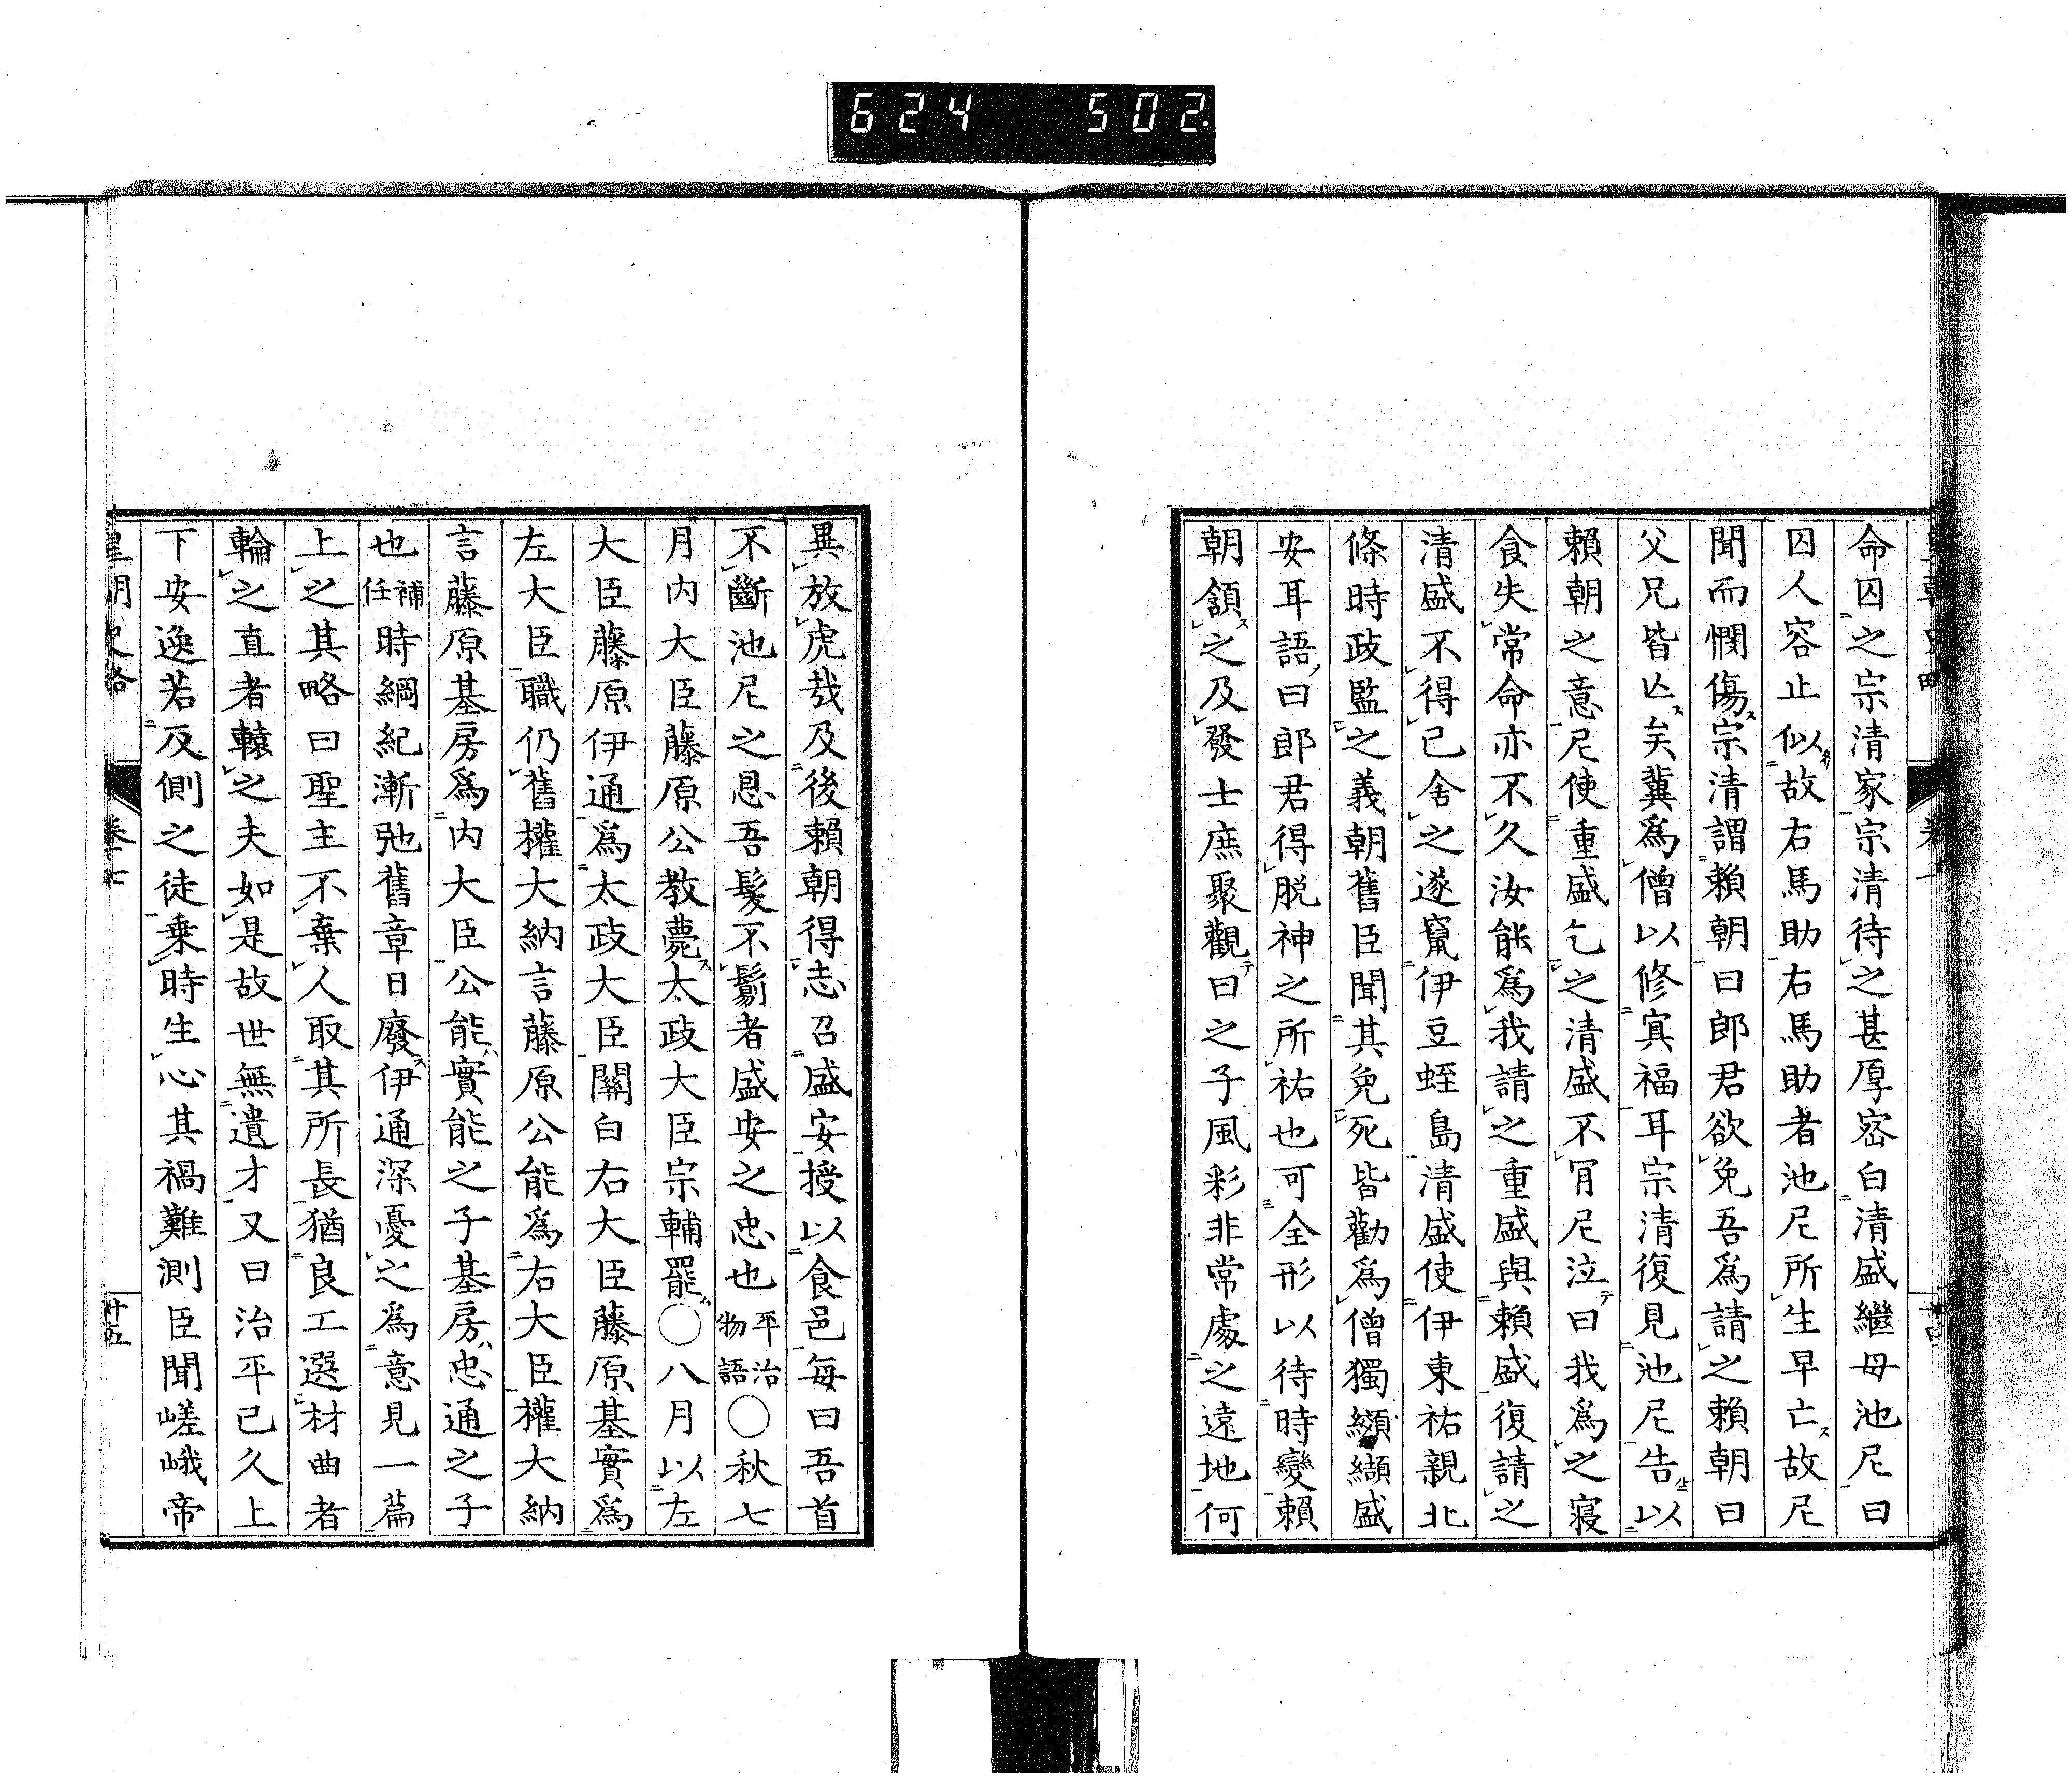 624 502
命囚之宗清家宗清待之甚厚密白清盛繼母池尼曰
囚人容止似故右馬助右馬助者池尼所生早亡故尼
聞而憫傷宗清謂賴朝曰郎君欲免吾爲請之賴朝曰
父兄皆亾矣冀爲僧以修冥福耳宗清復見池尼告以
賴朝之意尼使重盛乞之清盛不肎尼泣曰我爲之寢
食失常命亦不久汝能爲我請之重盛與賴盛復請之
清盛不得已舍之遂竄伊豆蛭島清盛使伊東祐親北
條時政監之義朝舊臣聞其免死皆勸爲僧獨纐纈盛
安耳語曰郎君得脱神之所祐也可全形以待時變賴
朝頷之及發士庶聚觀曰之子風彩非常處之遠地何
異放虎㢤及後賴朝得志召盛安授以食邑每曰吾首
不斷池尼之恩吾髮不鬀者盛安之忠也平治物語〇秋七
月内大臣藤原公教薨太政大臣宗輔罷〇八月以左
大臣藤原伊通爲太政大臣關白右大臣藤原基實爲
左大臣職仍舊權大納言藤原公能爲右大臣權大納
言藤原基房爲内大臣公能實能之子基房忠通之子
也補任時綱紀漸弛舊章日廢伊通深憂之爲意見一篇
上之其略曰聖主不棄人取其所長猶良工選材曲者
輪之直者轅之夫如是故世無遺才又曰治平已久上
下安逸若反側之徒乗時生心其禍難測臣聞嵯峨帝
皇朝史略 卷七 十五